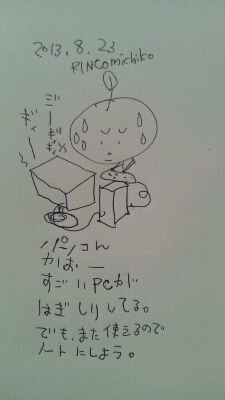 2013.8.23
RINGOmichiko
ゴーギョ
ギィー
パソコン
かばー
すごいPCが
はぎしりしてる。
でも、また使えるので
ノートにしよう。